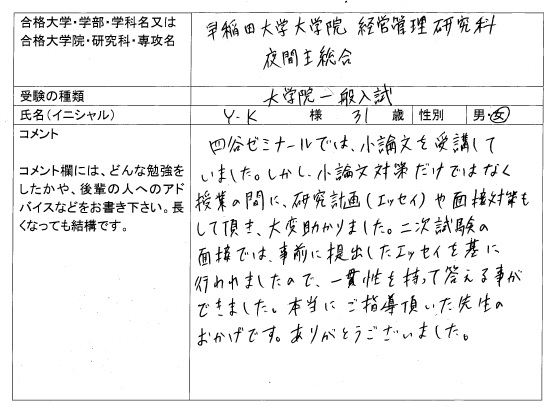 合格大学・学部・学科名又は
合格大学院・研究科・専攻名
早稲田大学大学院 経営管理研究科
夜間主総合
受験の種類
大学院一般入試
氏名(イニシャル)
Y-K 様 31 歳 性別 男・女
コメント
コメント欄には、どんな勉強を
したかや、後輩の人へのアド
バイスなどをお書き下さい。長
くなっても結構です。
四谷ゼミナールでは、小論文を受講して
いました。しかし、小論文対策だけではなく
授業の間に、研究計画(エッセイ)や面接対策も
して頂き、大変助かりました。二次試験の
面接では、事前に提出したエッセイを基に
行われましたので、一貫性を持って答える事が
できました。本当にご指導頂いた先生の
おかげです。ありがとうございました。